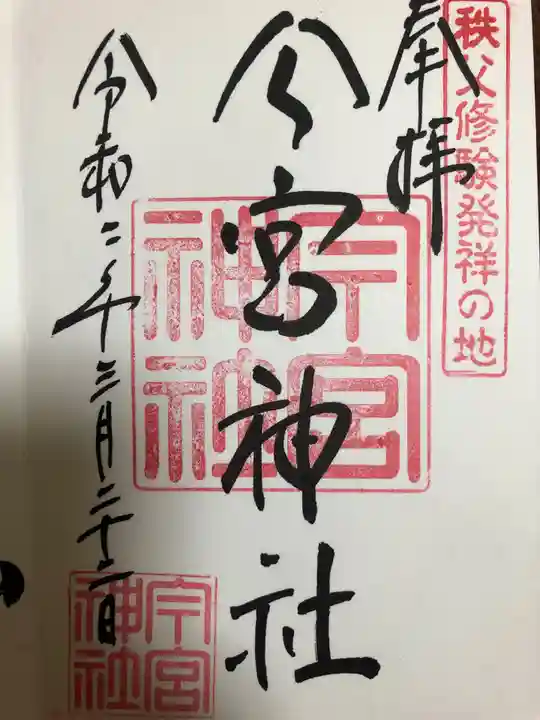 秩父修験発祥の地
奉拝
今宮神社
今宮神社
令和二年三月二十二日
今宮神社